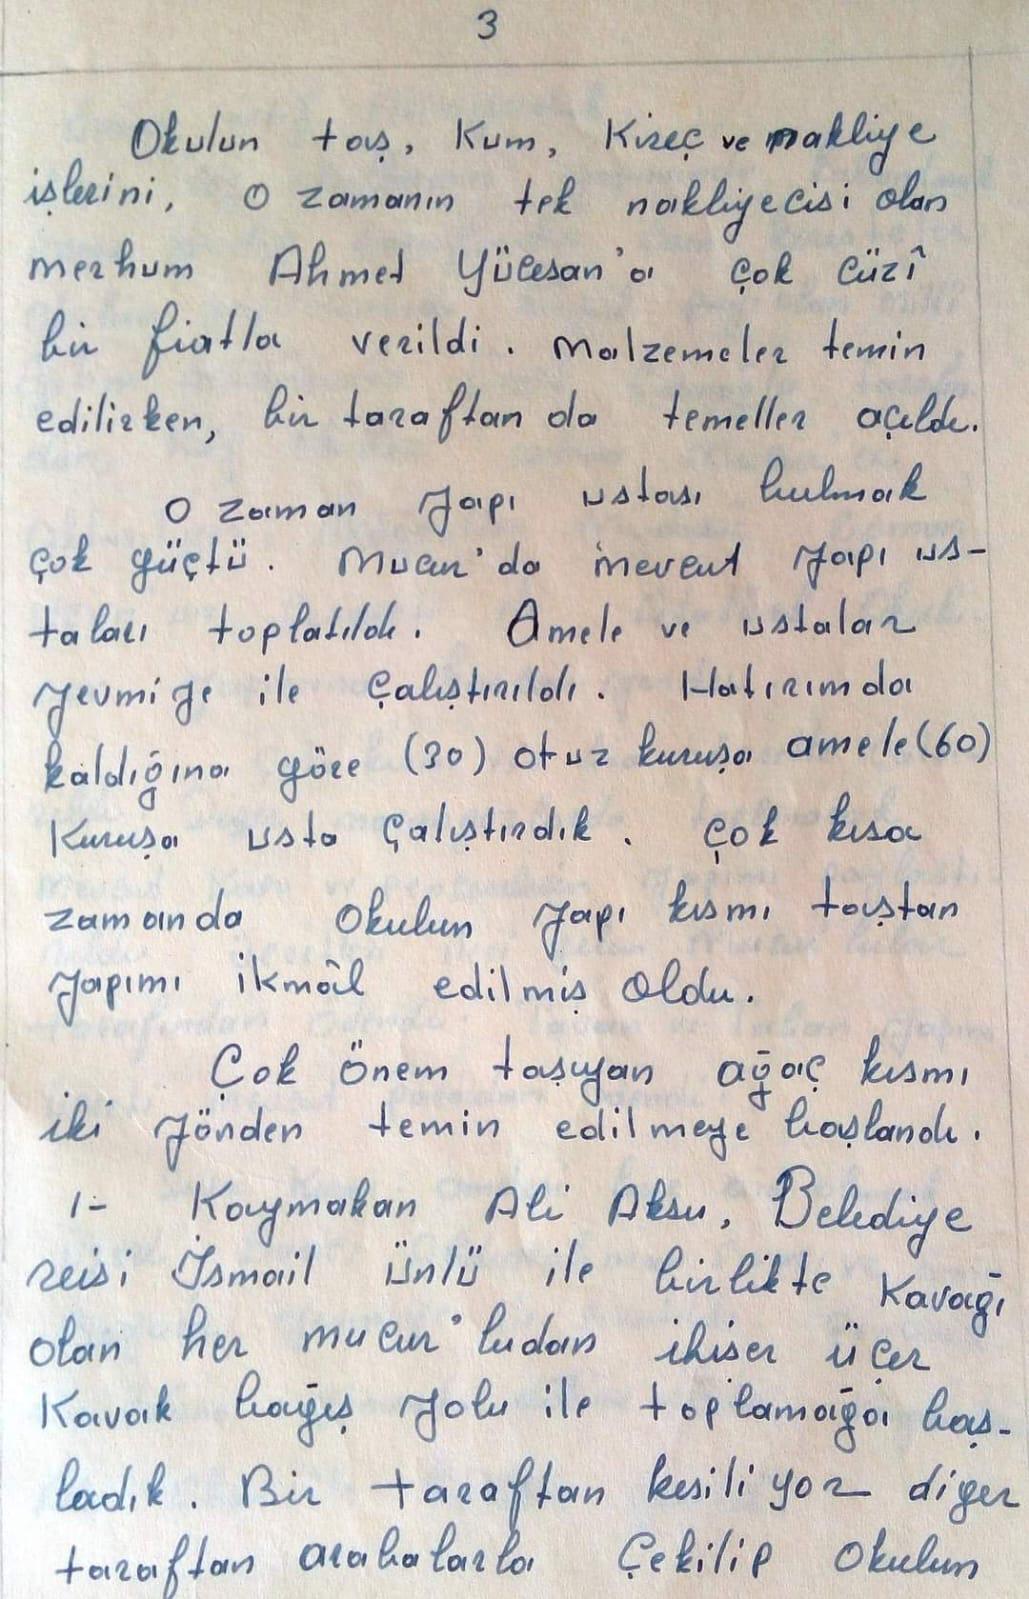 3
Okulun taş, Kum, Kireç ve nakliye
işlerini, O zamanın tek nakliyecisi olan
merhum Ahmet Yücesan'a çok cüzî
bir fiatla verildi. Malzemeler temin
edilirken, bir taraftan da temeller açıldı.
O zaman yapı ustası bulmak
çok güçtü. Mucur'da mevcut yapı us-
taları toplatıldı. Amele ve ustalar
yevmiye ile çalıştırıldı. Hatırımda
kaldığına göre (30) otuz kuruşa amele (60)
Kuruşa usta çalıştırdık. çok kısa
zamanda Okulun yapı kısmı taştan
yapımı ikmâl edilmiş oldu.
Çok önem taşıyan ağaç kısmı
iki yönden temin edilmeye başlandı.
1- Kaymakan Ali Aksu, Belediye
reisi İsmail Ünlü ile birlikte Kavağı
olan her mucur'ludan ikiser üçer
Kavak bağış yolu ile toplamağa baş-
ladık. Bir taraftan kesiliyor diğer
taraftan arabalarla çekilip Okulun